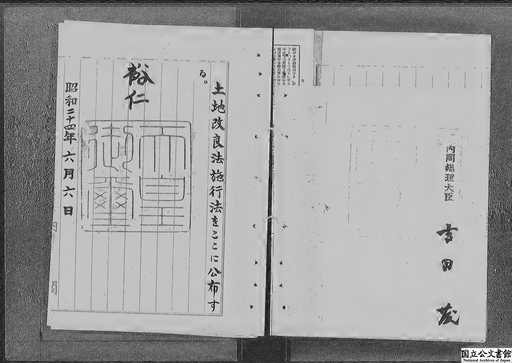 土地改良法施行法をここに公布す
る。
裕仁
天皇
御璽
昭和二十四年六月六日
内閣総理大臣
吉田茂
国立公文書館
National Archives of Japan